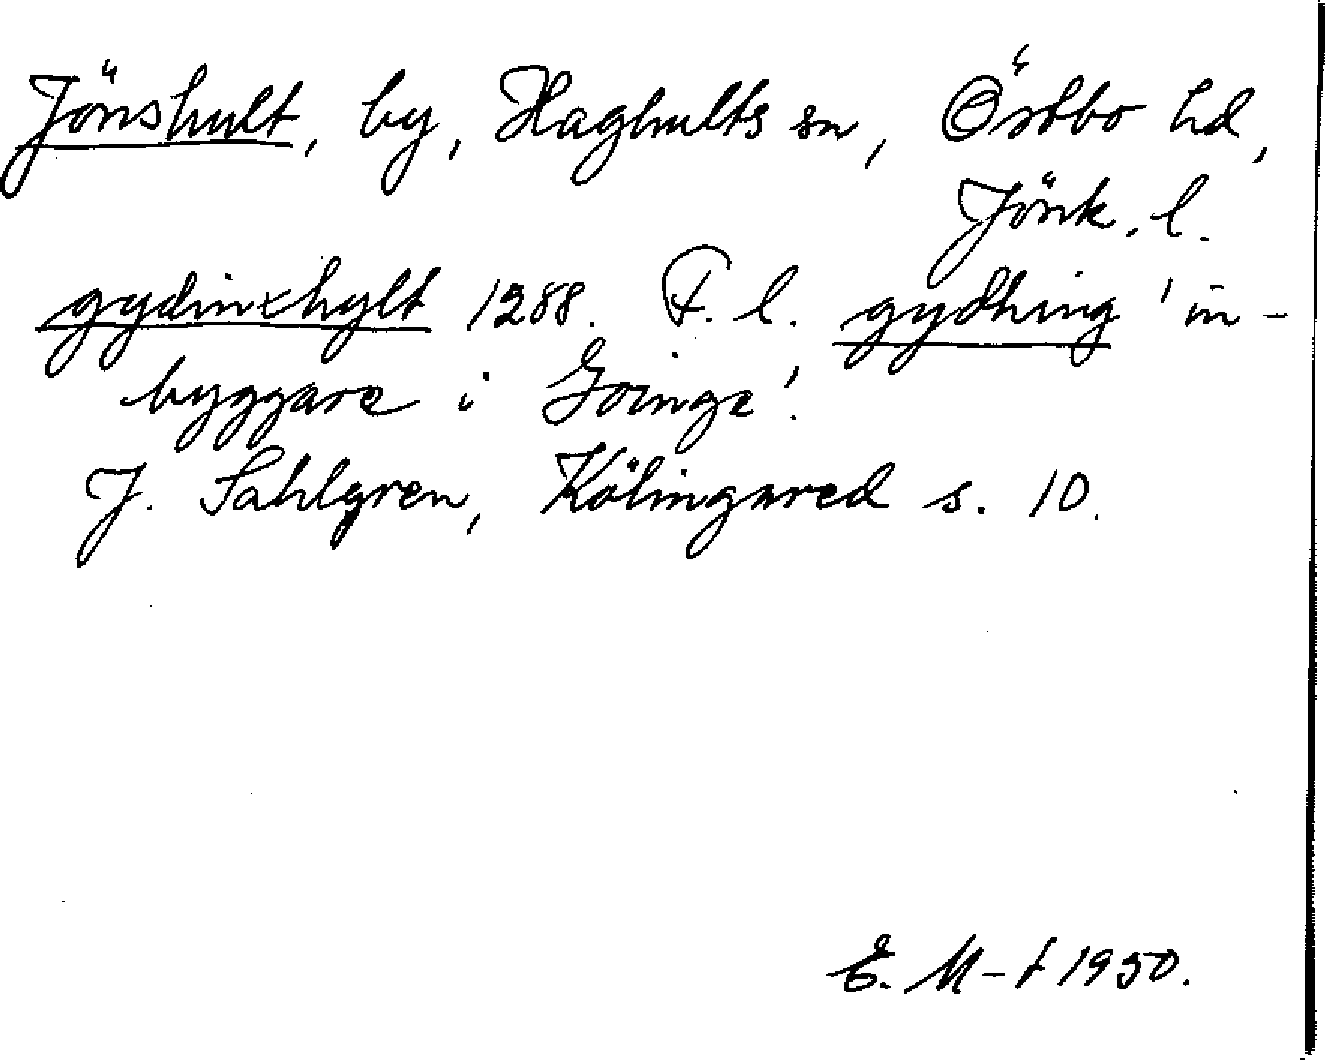 Jönshult, by, Haghults sn, Östbo hd,
Jönk. l.
gydinxhylt 1288. F. l. gydhing 'in-
byggare i Göinge'.
J. Sahlgren, Kölingared s. 10.
E. M-t 1950.